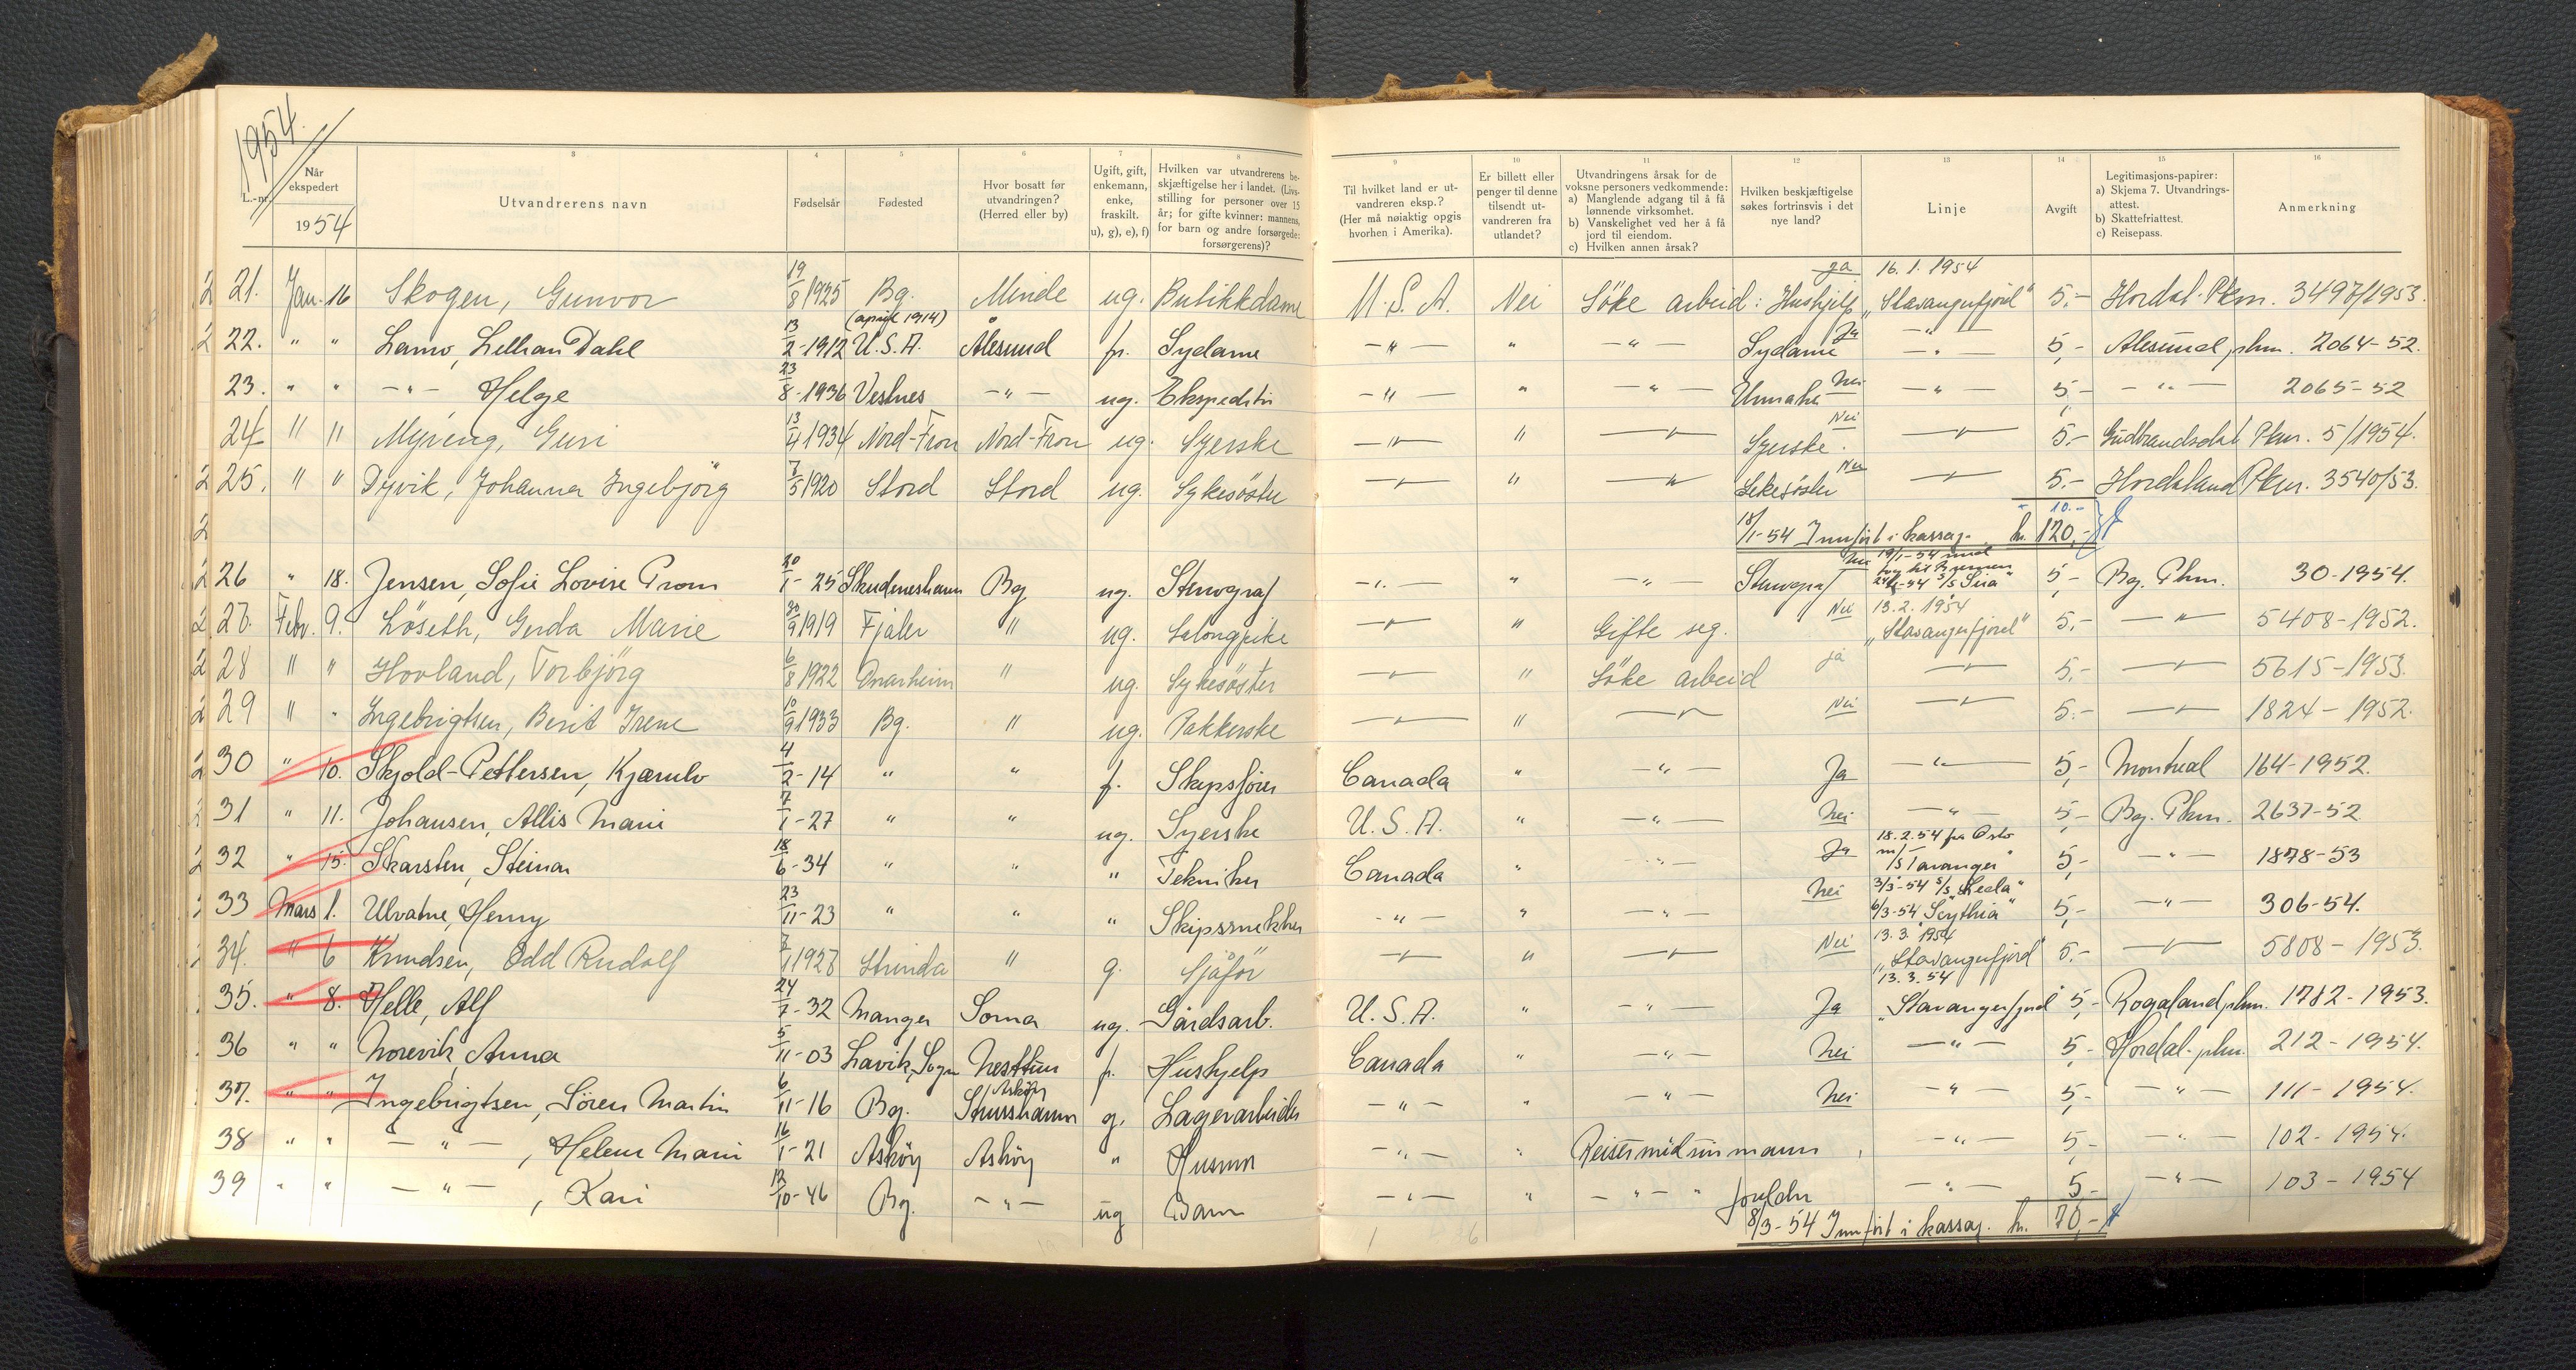 1954.
L.-nr.
Når ekspedert
1954
3
Utvandrerens navn
4
Fødselsår
5
Fødested
6
Hvor bosatt før utvandringen? (Herred eller by)
7
Ugift, gift, enkemann, enke, fraskilt. u), g), e), f)
8
Hvilken var utvandrerens beskjæftigelse her i landet. (Livsstilling for personer over 15 år; for gifte kvinner: mannens, for barn og andre forsørgede: forsørgerens)?
9
Til hvilket land er utvandreren eksp.? (Her må nøiaktig opgis hvorhen i Amerika).
10
Er billett eller penger til denne tilsendt utvandreren fra utlandet?
11
Utvandringens årsak for de voksne personers vedkommende:
a) Manglende adgang til å få lønnende virksomhet.
b) Vanskelighet ved her å få jord til eiendom.
c) Hvilken annen årsak?
12
Hvilken beskjæftigelse søkes fortrinsvis i det nye land?
13
Linje
14
Avgift
15
Legitimasjons-papirer:
a) Skjema 7. Utvandringsattest.
b) Skattefriattest.
c) Reisepass.
16
Anmerkning
21. Jan. 16 Skogen, Gunvor 19/8 1925 Bg. Minde ug. Butikkdame U.S.A. Nei Söke arbeid: Hushjelp ja 16.1.1954 "Stavangerfjord" 5,- Hordal. Pkm. 3497/1953.
22. " " Lamo, Lillian Dahl 13/2-1912 (april 1914) U.S.A. Ålesund fr. Sydame -"- " -"- Sydame Ja -"- 5,- Alesund pkm. 2064-52.
23. " " -"- Helge 23/8-1936 Vestnes -"- ug. Ekspeditör -"- " -"- Urmaker Nei -"- 5,- -"- 2065-52
24 " " Myreng, Guri 13/4 1934 Nord-Fron Nord-Fron ug. Syerske -"- " -"- Syerske. Nei -"- 5.- Gudbrandsdal Pkm. 5/1954.
25. " " Dyvik, Johanna Ingebjörg 7/5 1920 Stord Stord ug. Sykesöster -"- " -"- Sykesöster Nei -"- 5.- Hordaland Pkm. 3540/53.
10.-
18/1-54 Innfört i kassaj. kr. 120,-
26 " 18. Jensen, Sofie Lovise Prom 20/1-25 Skudeneshavn Bg ug. Stenograf -"- " -"- Stenograf Nei 19/1-54 med 5,- Bg. Pkm. 30-1954.
27. Febr. 9. Löseth, Gerda Marie 30/9 1919 Fjaler " ug. Salongpike -"- " Gifte seg. Nei 13.2.1954 "Stavangerfjord" 5,- -"- 5408-1952.
28 " " Hovland, Torbjörg 6/8 1922 Onarheim " ug. Sykesöster -"- " Söke arbeid ja -"- 5,- -"- 5615-1953.
29 " " Ingebrigtsen, Berit Irene 10/9 1933 Bg. " ug. Pakkerske -"- " -"- Nei -"- 5.- -"- 1824-1952.
30 " 10. Skjold-Pettersen, Kjærulv 4/2-14 " " f. Skipsförer Canada " -"- Ja -"- 5,- Montreal 164-1952.
31 " 11. Johansen, Allis Marie 7/1-27 " " ug. Syerske U.S.A. " -"- Nei -"- 5,- Bg. Pkm. 2637-52
32 " 15. Skarsten, Steinar 18/6-34 " " " Tekniker Canada " -"- Ja 18.2.54 fra Oslo m/s Tavanger" 5,- -"- 1878-53
33 Mars 1. Ulvatne, Henny 23/11-23 " " " Skipssnekker -"- " -"- Nei 3/3-54 s/s "Leda" 6/3-54 "Scythia" 5,- -"- 306-54.
34. " 6 Knudsen, Odd Rudolf 7/1 1927 Strinda " g. Sjåför -"- " -"- Nei 13.3.1954 "Stavangerfjord" 5.- -"- 5808-1953.
35. " 8. Helle, Alf 24/7-32 Manger Soma ug. Gårdsarb. U.S.A. " -"- Ja 13.3.54 "Stavangerfjord" 5,- Rogaland pkm. 1782-1953.
36 " " Norevik, Anna 5/11-03 Lavik, Sogn Nesttun fr. Hushjelp Canada " -"- Nei -"- 5,- Hordal. pkm. 212-1954.
37. " " Ingebrigtsen, Sören Martin 6/11-16 Bg. Strusshamn Askøy g. Lagerarbeider -"- " -"- Nei -"- 5,- -"- 111-1954.
38 " " -"-, Helene Marie 16/1-21 Asköy Asköy " Husmor -"- " Reiser med sin mann -"- 5,- -"- 102-1954.
39 " " -"-, Kari 13/10-46 Bg. -"- ug Barn -"- " -"- " foreldre -"- 5,- -"- 103-1954
8/3-54 Innfört i kassaj. kr. 70,-